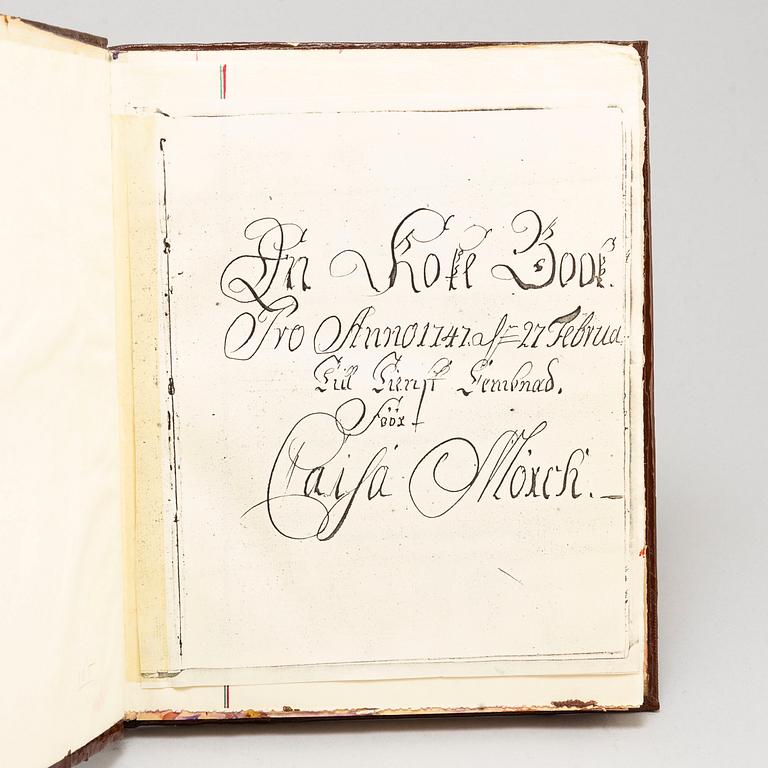 En Koke Book.
Pro Anno 1741. d. 27 Februa
Till Tienst Lembnad.
Föör
Caisa Mörck.